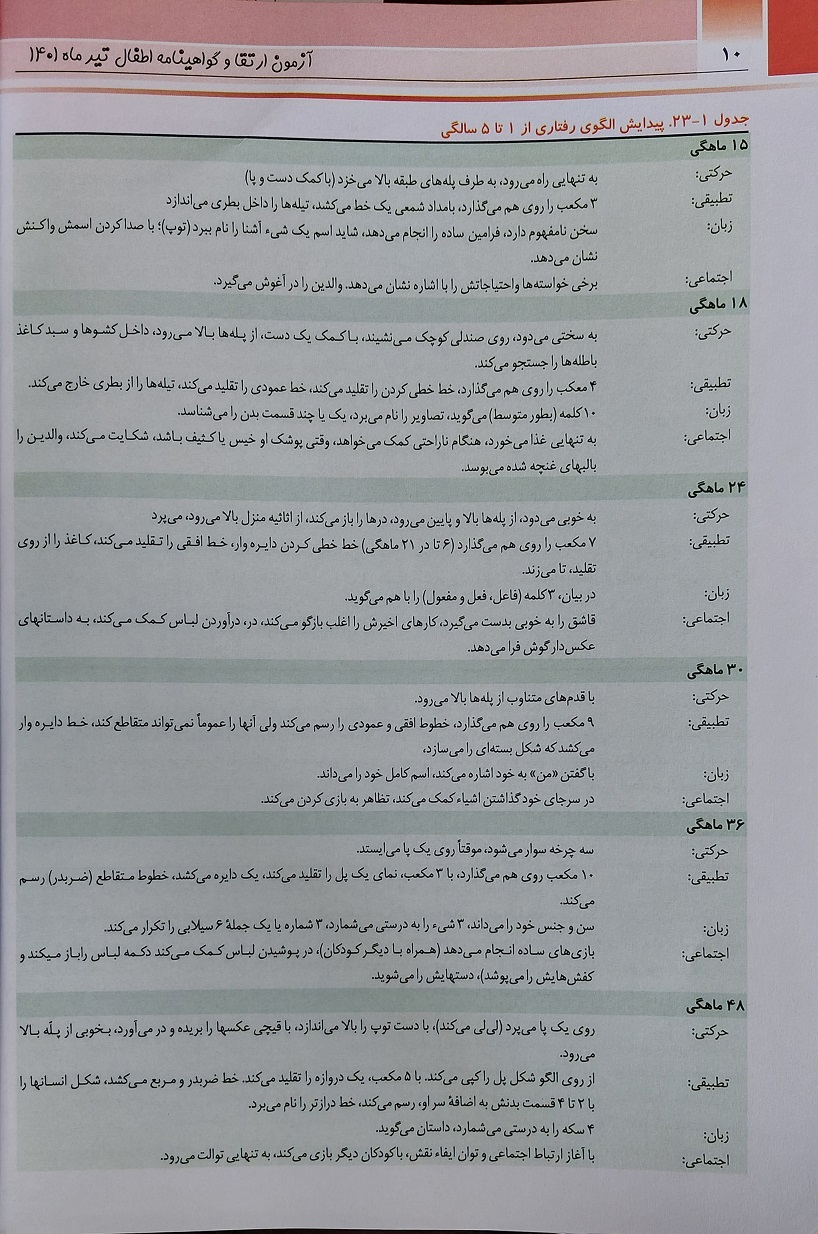 ۱۰
آزمون ارتقا و گواهینامه اطفال تیر ماه ۱۴۰۱
جدول ۱-۲۳. پیدایش الگوی رفتاری از ۱ تا ۵ سالگی
۱۵ ماهگی
حرکتی: به تنهایی راه می‌رود، به طرف پله‌های طبقه بالا می‌خزد (با کمک دست و پا)
تطبیقی: ۳ مکعب را روی هم می‌گذارد، بامداد شمعی یک خط می‌کشد، تیله‌ها را داخل بطری می‌اندازد
زبان: سخن نامفهوم دارد، فرامین ساده را انجام می‌دهد، شاید اسم یک شیء آشنا را نام ببرد (توپ)؛ با صدا کردن اسمش واکنش
نشان می‌دهد.
اجتماعی: برخی خواسته‌ها واحتیاجاتش را با اشاره نشان می‌دهد. والدین را در آغوش می‌گیرد.
۱۸ ماهگی
حرکتی: به سختی می‌دود، روی صندلی کوچک می‌نشیند، با کمک یک دست، از پله‌ها بالا می‌رود، داخل کشوها و سبد کاغذ
باطله‌ها را جستجو می‌کند.
تطبیقی: ۴ معکب را روی هم می‌گذارد، خط خطی کردن را تقلید می‌کند، خط عمودی را تقلید می‌کند، تیله‌ها را از بطری خارج می‌کند.
زبان: ۱۰ کلمه (بطور متوسط) می‌گوید، تصاویر را نام می‌برد، یک یا چند قسمت بدن را می‌شناسد.
اجتماعی: به تنهایی غذا می‌خورد، هنگام ناراحتی کمک می‌خواهد، وقتی پوشک او خیس یا کثیف باشد، شکایت می‌کند، والدین را
بالبهای غنچه شده می‌بوسد.
۲۴ ماهگی
حرکتی: به خوبی می‌دود، از پله‌ها بالا و پایین می‌رود، درها را باز می‌کند، از اثاثیه منزل بالا می‌رود، می‌پرد
تطبیقی: ۷ مکعب را روی هم می‌گذارد (۶ تا در ۲۱ ماهگی) خط خطی کردن دایره وار، خط افقی را تقلید می‌کند، کاغذ را از روی
تقلید، تا می‌زند.
زبان: در بیان، ۳ کلمه (فاعل، فعل و مفعول) را با هم می‌گوید.
اجتماعی: قاشق را به خوبی بدست می‌گیرد، کارهای اخیرش را اغلب بازگو می‌کند، در، درآوردن لباس کمک می‌کند، به داستانهای
عکس‌دار گوش فرا می‌دهد.
۳۰ ماهگی
حرکتی: با قدم‌های متناوب از پله‌ها بالا می‌رود.
تطبیقی: ۹ مکعب را روی هم می‌گذارد، خطوط افقی و عمودی را رسم می‌کند ولی آنها را عموماً نمی‌تواند متقاطع کند، خط دایره وار
می‌کشد که شکل بسته‌ای را می‌سازد،
زبان: با گفتن «من» به خود اشاره می‌کند، اسم کامل خود را می‌داند.
اجتماعی: در سرجای خود گذاشتن اشیاء کمک می‌کند، تظاهر به بازی کردن می‌کند.
۳۶ ماهگی
حرکتی: سه چرخه سوار می‌شود، موقتاً روی یک پا می‌ایستد.
تطبیقی: ۱۰ مکعب روی هم می‌گذارد، با ۳ مکعب، نمای یک پل را تقلید می‌کند، یک دایره می‌کشد، خطوط متقاطع (ضربدر) رسم
می‌کند.
زبان: سن و جنس خود را می‌داند، ۳ شیء را به درستی می‌شمارد، ۳ شماره یا یک جملهٔ ۶ سیلابی را تکرار می‌کند.
اجتماعی: بازی‌های ساده انجام می‌دهد (همراه با دیگر کودکان)، در پوشیدن لباس کمک می‌کند دکمه لباس راباز میکند و
کفش‌هایش را می‌پوشد)، دستهایش را می‌شوید.
۴۸ ماهگی
حرکتی: روی یک پا می‌پرد (لی‌لی می‌کند)، با دست توپ را بالا می‌اندازد، با قیچی عکسها را بریده و در می‌آورد، بخوبی از پلّه بالا
می‌رود.
تطبیقی: از روی الگو شکل پل را کپی می‌کند. با ۵ مکعب، یک دروازه را تقلید می‌کند. خط ضربدر و مربع می‌کشد، شکل انسانها را
با ۲ تا ۴ قسمت بدنش به اضافهٔ سر او، رسم می‌کند، خط درازتر را نام می‌برد.
زبان: ۴ سکه را به درستی می‌شمارد، داستان می‌گوید.
اجتماعی: با آغاز ارتباط اجتماعی و توان ایفاء نقش، باکودکان دیگر بازی می‌کند، به تنهایی توالت می‌رود.